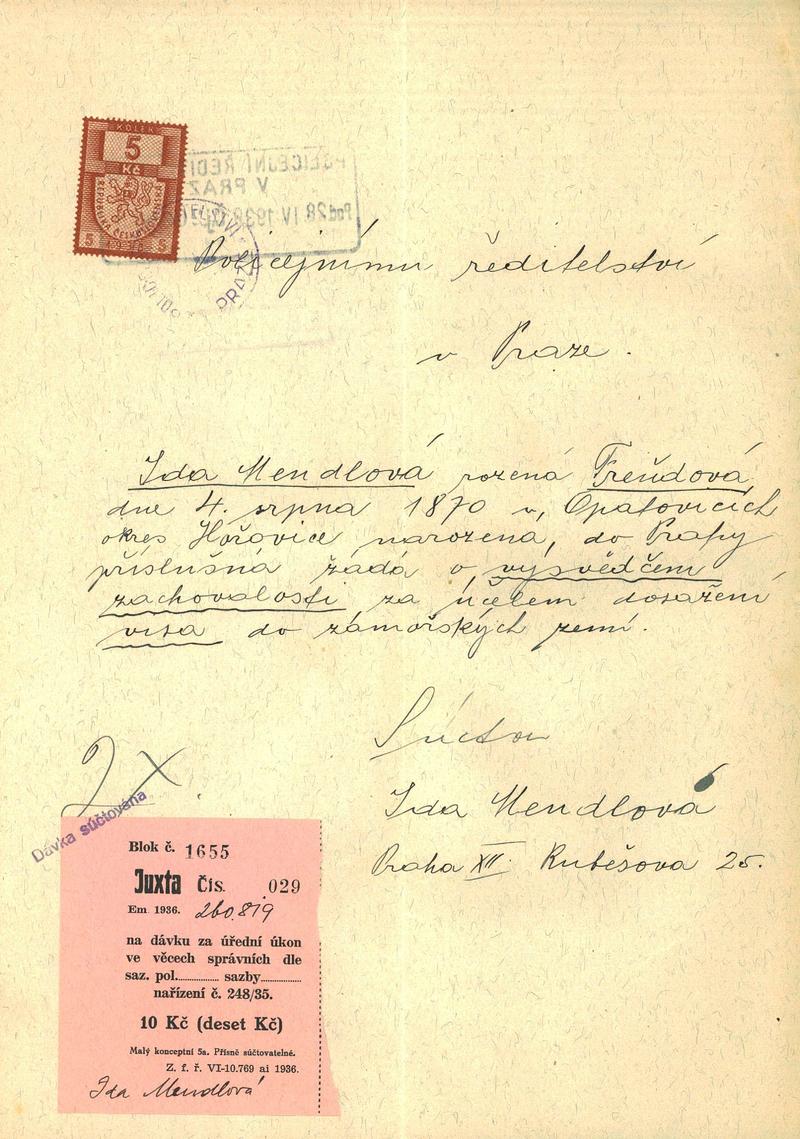 KOLEK
5
Kč
REPUBLIKA ČESKOSLOVENSKÁ
5 1938 5
POLICEJNÍ ŘEDI
V PRAZE
Pod 28 IV 1938
PRAZE
Policejnímu ředitelství
v Praze.
Ida Mendlová rozená Freüdová
dne 4. srpna 1870 v Opatovicích
okres Hořovice narozena, do Prahy
příslušná žádá o vysvědčení
zachovalosti za účelem dosažení
visa do zámořských zemí.
Ida Mendlová
Praha XII. Rubešova 25.
Dávka súčtována
Blok č. 1655
Juxta čís. 029
Em 1936. 260.819
na dávku za úřední úkon
ve věcech správních dle
saz. pol............ sazby............
nařízení č. 248/35.
10 Kč (deset Kč)
Malý konceptní 5a. Přísně súčtovatelné.
Z. f. ř. VI-10.769 ai 1936.
Ida Mendlová